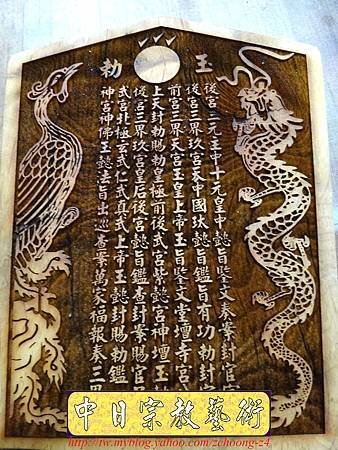 玉勅
後宮三元主中十元皇中懿旨鑒文奏案封官
後宮三界玖宮泰中國玞懿旨鑑旨有功勅封
前宮三界天宮玉皇上帝玉旨鑒文堂壇寺宮
上天封勅賜勅皇極前後武宮紫懿宮神壇玉
從宮三界玖宮皇后後宮懿旨鑑查封案賜官
武宮北極玄武仁武真武上帝玉懿封賜勅鑑
神宮神佛玉懿法旨出巡查案萬家福報奏三
中日宗教藝術
http://tw.myblog.yahoo.com/zchoong-z4